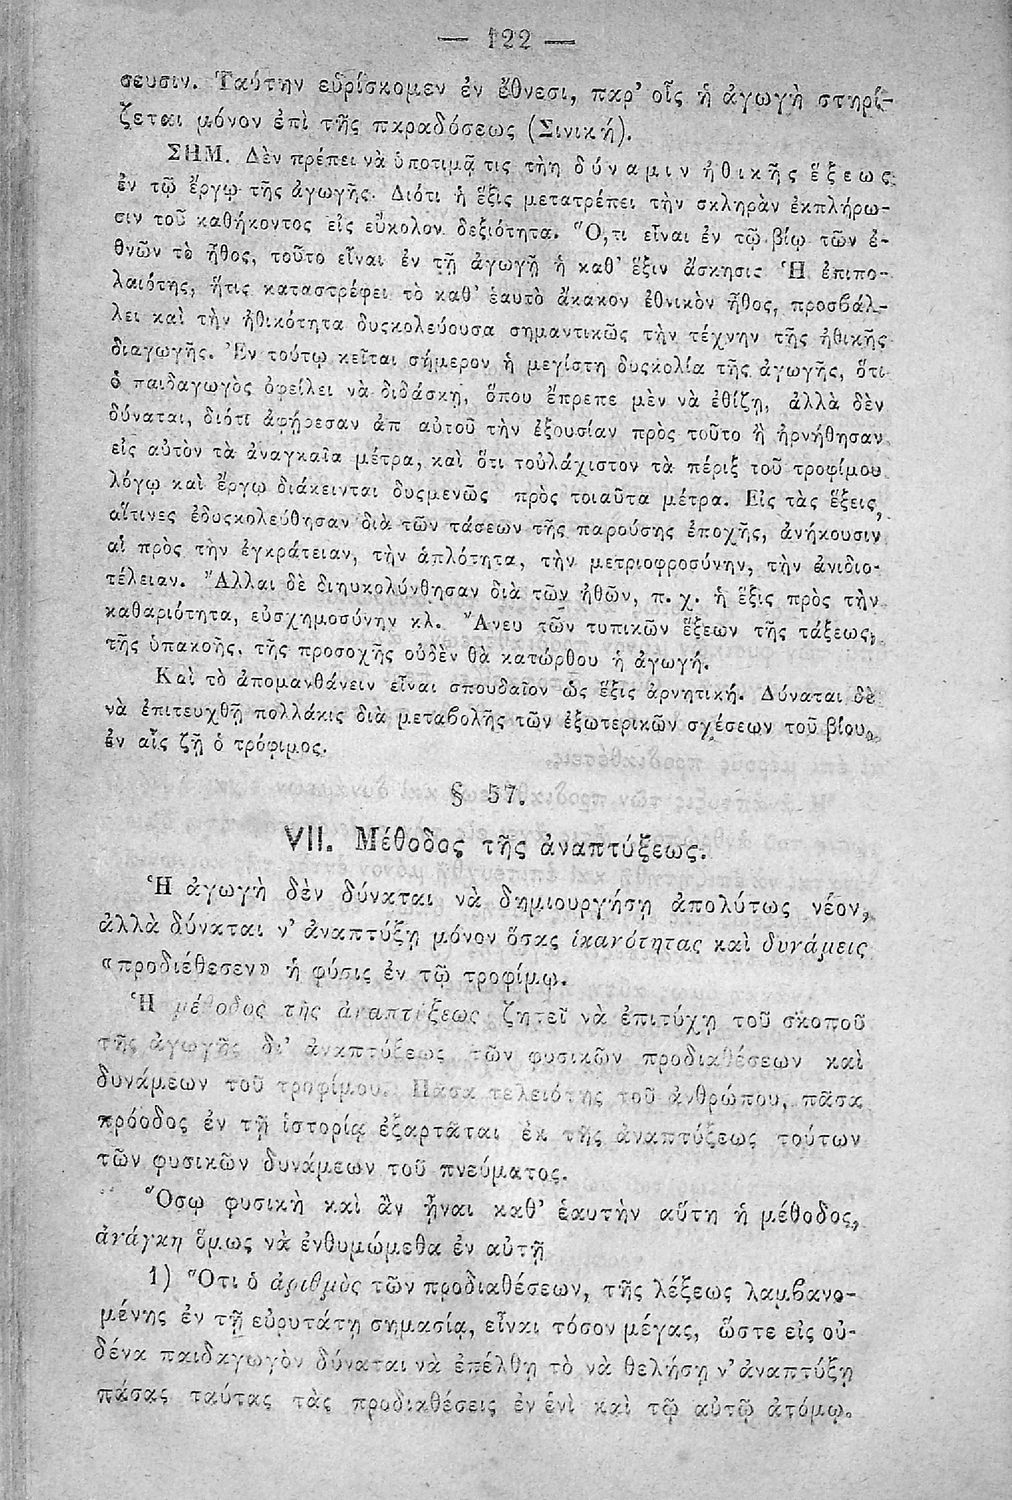 — 122 —
σευσιν. Ταύτην εὑρίσκομεν ἐν ἔθνεσι, παρ' οἷς ἡ ἀγωγὴ στηρί-
ζεται μόνον ἐπὶ τῆς παραδόσεως (Σινική).
ΣΗΜ. Δὲν πρέπει νὰ ὑποτιμᾷ τις τὴη δύναμιν ἠθικῆς ἕξεως
ἐν τῷ ἔργῳ τῆς ἀγωγῆς. Διότι ἡ ἕξις μετατρέπει τὴν σκληρὰν ἐκπλήρω-
σιν τοῦ καθήκοντος εἰς εὔκολον δεξιότητα. Ὅ,τι εἶναι ἐν τῷ βίῳ τῶν ἐ-
θνῶν τὸ ἦθος, τοῦτο εἶναι ἐν τῇ ἀγωγῇ ἡ καθ' ἕξιν ἄσκησις Ἡ ἐπιπο-
λαιότης, ἥτις καταστρέφει τὸ καθ' ἑαυτὸ ἄκακον ἐθνικὸν ἦθος, προσβάλ-
λει καὶ τὴν ἠθικότητα δυσκολεύουσα σημαντικῶς τὴν τέχνην τῆς ἠθικῆς
διαγωγῆς. Ἐν τούτῳ κεῖται σήμερον ἡ μεγίστη δυσκολία τῆς ἀγωγῆς, ὅτι
ὁ παιδαγωγὸς ὀφείλει νὰ διδάσκῃ, ὅπου ἔπρεπε μὲν νὰ ἐθίζῃ, ἀλλὰ δὲν
δύναται, διότι ἀφῄρεσαν ἀπ αὐτοῦ τὴν ἐξουσίαν πρὸς τοῦτο ἢ ἠρνήθησαν
εἰς αὐτὸν τὰ ἀναγκαῖα μέτρα, καὶ ὅτι τοὐλάχιστον τὰ πέριξ τοῦ τροφίμου
λόγῳ καὶ ἔργῳ διάκεινται δυσμενῶς πρὸς τοιαῦτα μέτρα. Εἰς τὰς ἕξεις,
αἵτινες ἐδυσκολεύθησαν διὰ τῶν τάσεων τῆς παρούσης ἐποχῆς, ἀνήκουσιν
αἱ πρὸς τὴν ἐγκράτειαν, τὴν ἁπλότητα, τὴν μετριοφροσύνην, τὴν ἀνιδιο-
τέλειαν. Ἄλλαι δὲ διηυκολύνθησαν διὰ τῶν ἠθῶν, π. χ. ἡ ἕξις πρὸς τὴν
καθαριότητα, εὐσχημοσύνην κλ. Ἄνευ τῶν τυπικῶν ἕξεων τῆς τάξεως,
τῆς ὑπακοῆς, τῆς προσοχῆς οὐδὲν θὰ κατώρθου ἡ ἀγωγή.
Καὶ τὸ ἀπομανθάνειν εἶναι σπουδαῖον ὡς ἕξις ἀρνητική. Δύναται δὲ
νὰ ἐπιτευχθῇ πολλάκις διὰ μεταβολῆς τῶν ἐξωτερικῶν σχέσεων τοῦ βίου,
ἐν αἷς ζῇ ὁ τρόφιμος.
§ 57.
VII. Μέθοδος τῆς ἀναπτύξεως.
Ἡ ἀγωγὴ δὲν δύναται νὰ δημιουργήσῃ ἀπολύτως νέον,
ἀλλὰ δύναται ν' ἀναπτύξῃ μόνον ὅσας ἱκανότητας καὶ δυνάμεις
«προδιέθεσεν» ἡ φύσις ἐν τῷ τροφίμῳ.
Ἡ μέθοδος τῆς ἀναπτύξεως ζητεῖ νὰ ἐπιτύχῃ τοῦ σκοποῦ
τῆς ἀγωγῆς δι' ἀναπτύξεως τῶν φυσικῶν προδιαθέσεων καὶ
δυνάμεων τοῦ τροφίμου. Πᾶσα τελειότης τοῦ ἀνθρώπου, πᾶσα
πρόοδος ἐν τῇ ἱστορίᾳ ἐξαρτᾶται ἐκ τῆς ἀναπτύξεως τούτων
τῶν φυσικῶν δυνάμεων τοῦ πνεύματος.
Ὅσῳ φυσικὴ καὶ ἂν ᾖναι καθ' ἑαυτὴν αὕτη ἡ μέθοδος,
ἀνάγκη ὅμως νὰ ἐνθυμώμεθα ἐν αὐτῇ
1) Ὅτι ὁ ἀριθμὸς τῶν προδιαθέσεων, τῆς λέξεως λαμβανο-
μένης ἐν τῇ εὐρυτάτῃ σημασίᾳ, εἶναι τόσον μέγας, ὥστε εἰς οὐ-
δένα παιδαγωγὸν δύναται νὰ ἐπέλθῃ τὸ νὰ θελήσῃ ν' ἀναπτύξῃ
πάσας ταύτας τὰς προδιαθέσεις ἐν ἑνὶ καὶ τῷ αὐτῷ ἀτόμῳ.